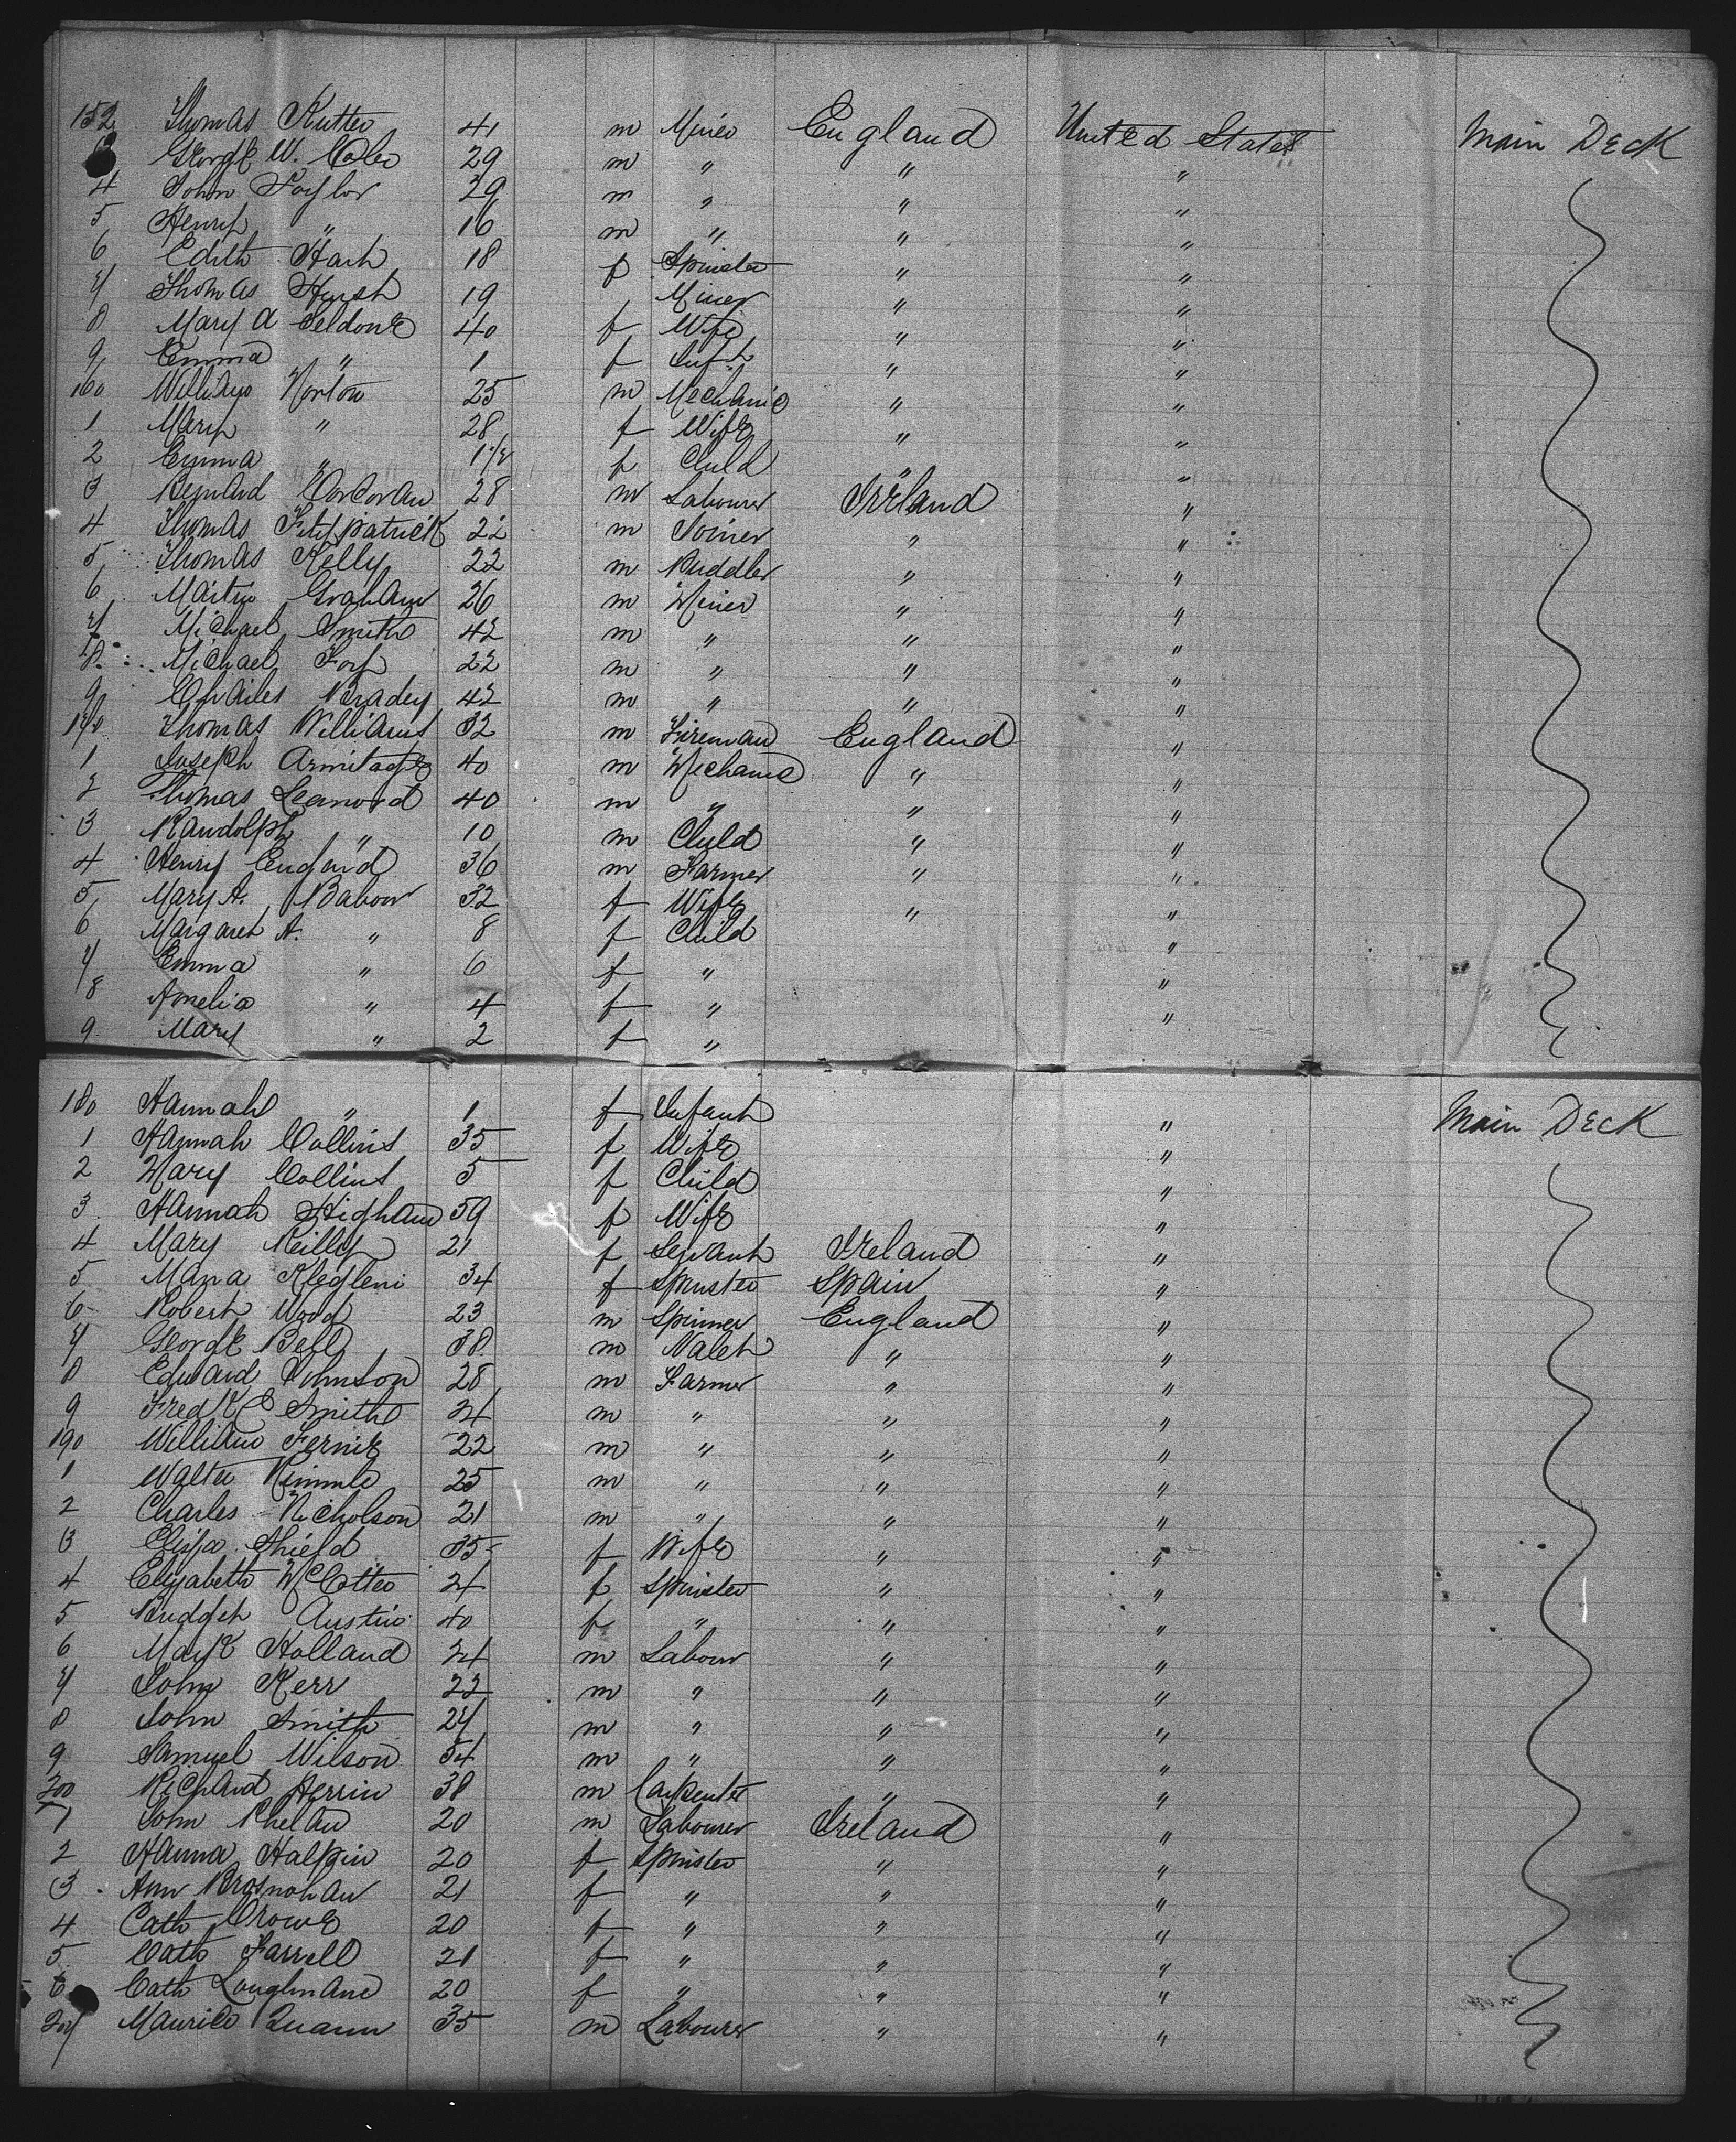 152 Thomas Rutter 41 m Miner England United States Main Deck
George W. 29 m " " "
4 John Taylor 29 m " " "
5 Henry " 16 m " " "
6 Edith 18 f Spinster " "
7 Thomas 19 Miner " "
8 Mary A 40 f Wife " "
9 Emma " 1 f Inft " "
160 William Norton 25 m Mechanic " "
1 Mary " 28 f Wife " "
2 Emma " f Child " "
3 Bernard Corcoran 28 m Labourer Ireland "
4 Thomas Fitzpatrick 22 m Joiner " "
5 Thomas Kelly 22 m Puddler " "
6 Martin Graham 26 m Miner " "
7 Michael Smith 42 m " " "
8 Michael Foy 22 m " " "
9 Charles Bradey 42 m " " "
170 Thomas Williams 32 m Fireman England "
1 Joseph Armitage 40 m Mechanic " "
2 Thomas Leanord 40 m " " "
3 Randolph " 10 m Child " "
4 Henry England 36 m Farmer " "
5 Mary A. 32 f Wife " "
6 Margaret A. " 8 f Child "
7 Emma " 6 f " "
8 Amelia " 4 f " "
9 Mary " 2 f "
180 Hannah " 1 f Infant " Main Deck
1 Hannah Collins 35 f Wife "
2 Mary Collins 5 f Child "
3 Hannah Higham 59 f Wife "
4 Mary Reilly 21 f Servant Ireland "
5 Maria 34 f Spinster Spain "
6 Robert Wood 23 m Spinner England "
7 George Bell 38 m Valet " "
8 Edward Johnson 28 m Farmer " "
9 Fredk C Smith 21 m " " "
190 William Fernie 22 m " " "
1 Walter 25 m " " "
2 Charles Nicholson 21 m " " "
3 Eliza Shield 35 f Wife " "
4 Elizabeth 21 f Spinster " "
5 Bridget Austin 40 f " " "
6 Mark Holland 21 m Labour " "
7 John Kerr 22 m " " "
8 John Smith 27 m " " "
9 Samuel Wilson 54 m " " "
200 Richard Herrin 38 m Carpenter " "
1 John Phelan 20 m Labourer Ireland "
2 Hanna Halpin 20 f Spinster " "
3 Ann Brosnohan 21 f " " "
4 Cath Crowe 20 f " " "
5 Cath Farrell 21 f " " "
6 Cath Loughnane 20 f " " "
207 Maurice Quann 35 m Labourer " "